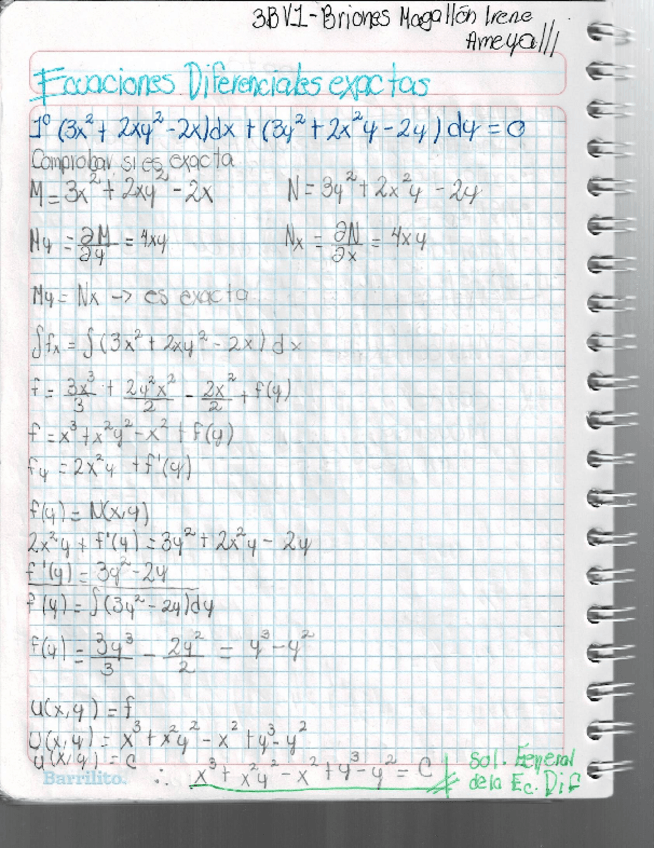 3BV1-Briones Magallón Irene
Ameyalli
Ecuaciones Diferenciales exactas
1° (3x² + 2xy² - 2x)dx + (3y² + 2x²y - 2y) dy = 0
Comprobar si es exacta
M = 3x² + 2xy² - 2x N = 3y² + 2x²y - 2y
My = ∂M/∂y = 4xy Nx = ∂N/∂x = 4xy
My = Nx -> es exacta
∫fx = ∫(3x² + 2xy² - 2x) dx
f = 3x³/3 + 2y²x²/2 - 2x²/2 + f(y)
f = x³ + x²y² - x² + f(y)
fy = 2x²y + f'(y)
f(y) = N(x,y)
2x²y + f'(y) = 3y² + 2x²y - 2y
f'(y) = 3y² - 2y
f(y) = ∫(3y² - 2y)dy
f(y) = 3y³/3 - 2y²/2 = y³ - y²
u(x,y) = f
u(x,y) = x³ + x²y² - x² + y³ - y²
u(x,y) = c
∴ x³ + x²y² - x² + y³ - y² = C
Sol. General
de la Ec. Dif
Barrilito.